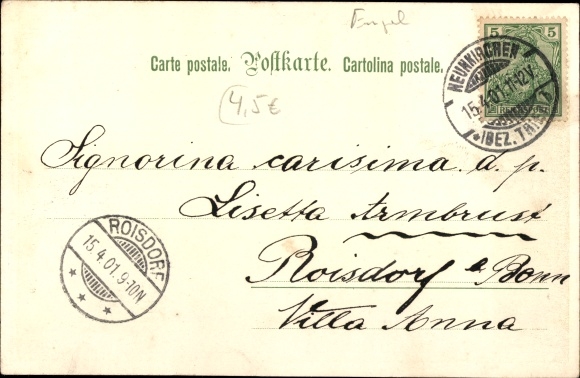 Engel
5 5
Carte postale. Postkarte. Cartolina postale.
NEUNKIRCHEN
15.4.01.11-12V.
*(BEZ. TRIER)
4,5€
Signorina carisima. a. p.
Lisetta Armbrust
ROISDORF
15.4.01.9-10N
Roisdorf b Bonn
Villa Anna